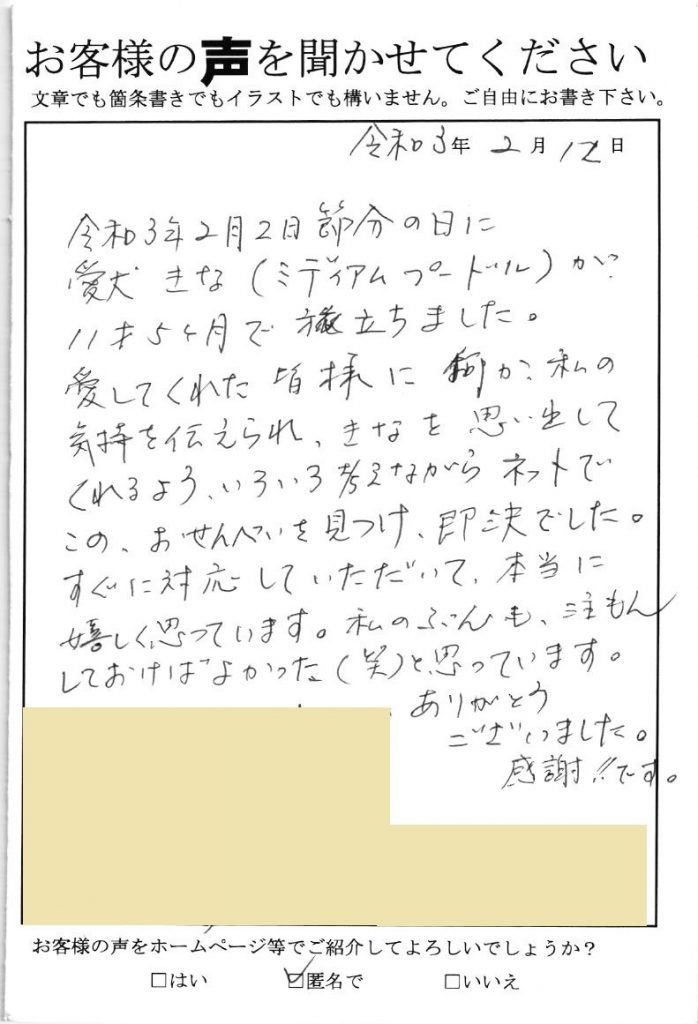 お客様の声を聞かせてください
文章でも箇条書きでもイラストでも構いません。ご自由にお書き下さい。
令和3年 2月 12日
令和3年2月2日節分の日に
愛犬 きな(ミディアムプードル)が
11才5ヶ月で 旅立ちました。
愛してくれた皆様に 何か 私の
気持を伝えられ、きなを思い出して
くれるよう、いろいろ考えながらネットで
この、おせんべいを見つけ、即決でした。
すぐに対応していただいて、本当に
嬉しく思っています。私のぶんも、注もん
しておけばよかった(笑)と思っています。
ありがとう
ございました。
感謝!!です。
お客様の声をホームページ等でご紹介してよろしいでしょうか?
□はい ☑匿名で □いいえ